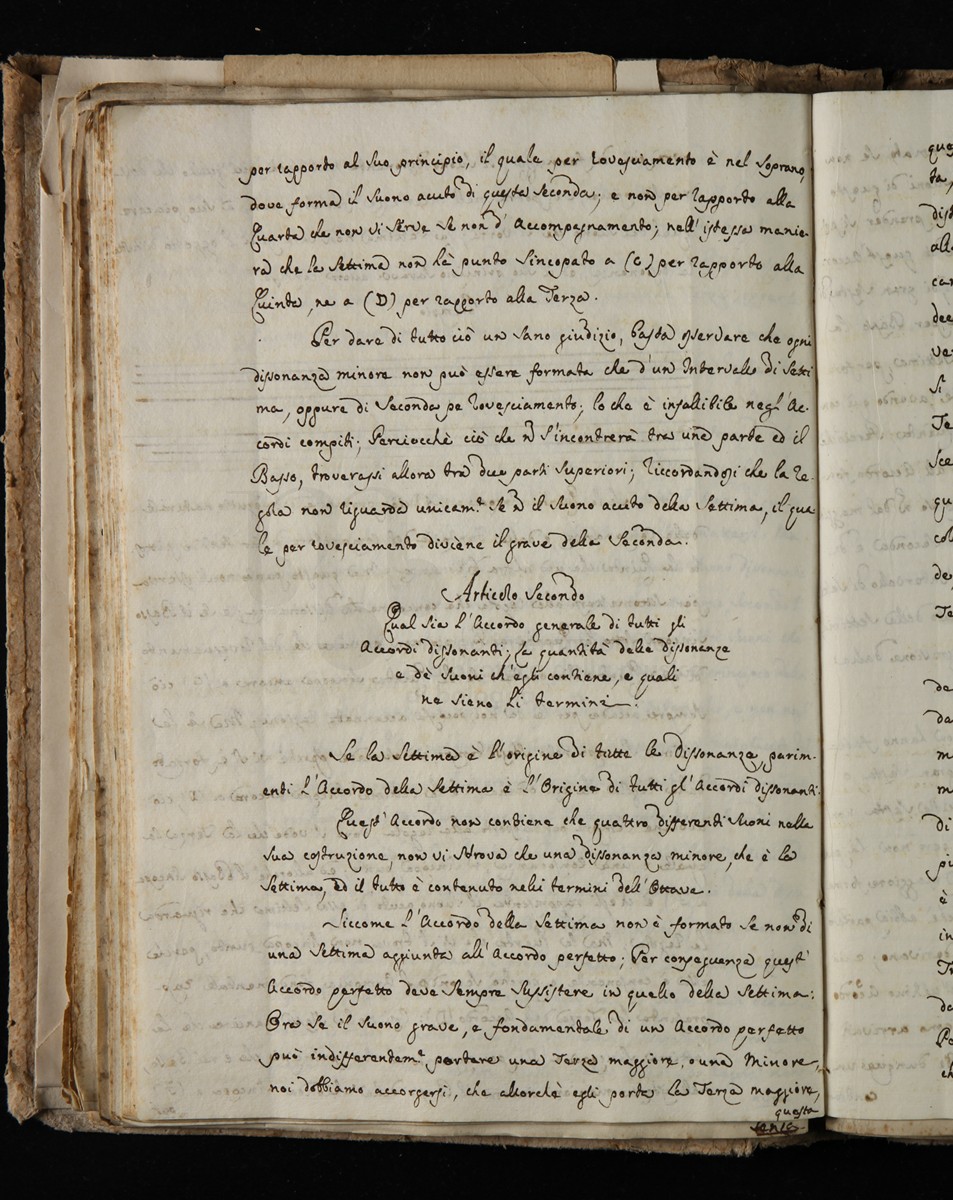 per rapporto al suo principio, il quale per rovesciamento è nel Soprano,
dove forma il suono acuto di questa Seconda; e non per rapporto alla
Quarta che non vi serve se non d'Accompagnamento; nell'istessa manie-
ra che la Settima non hà punto Sincopato a (C) per rapporto alla
Quinta, ne a (D) per rapporto alla Terza.
Per dare di tutto ciò un sano giudizio, basta osservare che ogni
dissonanza minore non può essere formata che d'un Intervallo di Setti
ma, oppure di Seconda pe rovesciamento; lo che è infallibile negl'Ac-
cordi compiti; Perciocchè ciò che n̄ s'incontrerà tra una parte ed il
Basso, troverassi allora tra due parti superiori; Riccordandosi che la Re-
gola non riguarda unicam.e se n̄ il suono acuto della Settima, il qua
le per rovesciamento diviene il grave della Seconda.
Articolo Secondo
Qual sia l'Accordo generale di tutti gli
Accordi dissonanti; la quantità delle dissonanze
e dè suoni ch'egli contiene, e quali
ne sieno li termini.
Se la Settima è l'origine di tutte le dissonanze, parim-
enti l'Accordo della Settima è l'Origine di tutti gl'Accordi dissonanti.
Quest'Accordo non contiene che quattro differenti suoni nella
sua costruzione, non vi si trova che una dissonanza minore, che è la
Settima, ed il tutto è contenuto nelli termini dell'Ottava.
Siccome l'Accordo della Settima non è formato se non di
una Settima aggiunta all'Accordo perfetto; Per conseguenza quest'
Accordo perfetto deve sempre sussistere in quello della Settima:
Ora se il suono grave, e fondamentale di un Accordo perfetto
può indifferentam.e portare una Terza maggiore, o una Minore,
noi dobbiamo accorgersi, che allorchè egli porta la Terza maggiore,
questa
ta,
dist
all
car
dee
ve
si
Te
Sce
qu
col
de
Te
de
da
m
m
di
pi
è
in
T
da
Pe
ch